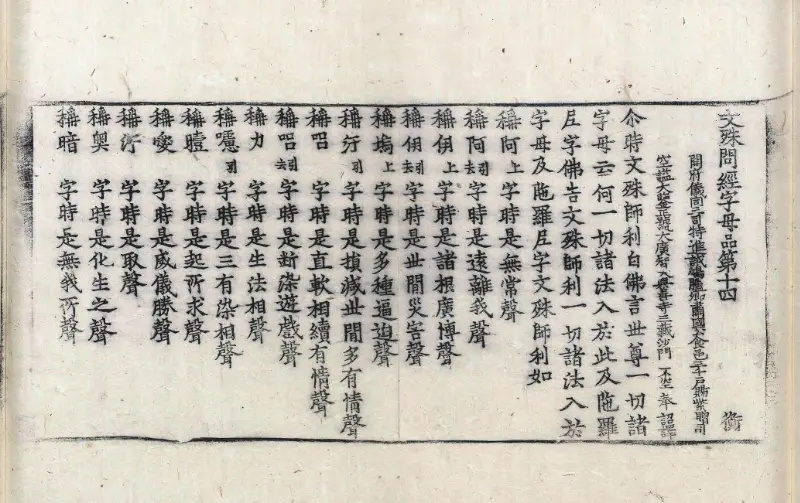 文殊問經字母品第十四 衡
開府儀同三司特進試鴻臚卿肅國公食邑三千戶賜紫贈司
空謚大鑒正號大廣智大興善寺三藏沙門 不空 奉 詔譯
尒時文殊師利白佛言世尊一切諸
字母云何一切諸法入於此及陁羅
尼字佛告文殊師利一切諸法入於
字母及陁羅尼字文殊師利如
稱阿上 字時是無常聲
稱阿引去 字時是遠離我聲
稱伊上 字時是諸根廣博聲
稱伊引去 字時是世間災害聲
稱塢上 字時是多種逼迫聲
稱汙引 字時是損減世間多有情聲
稱 字時是直軟相續有情聲
稱 引去 字時是斷染遊戲聲
稱力 字時是生法相聲
稱嚧引 字時是三有染相聲
稱曀 字時是起所求聲
稱愛 字時是威儀勝聲
稱汙 字時是取聲
稱奧 字時是化生之聲
稱暗 字時是無我所聲